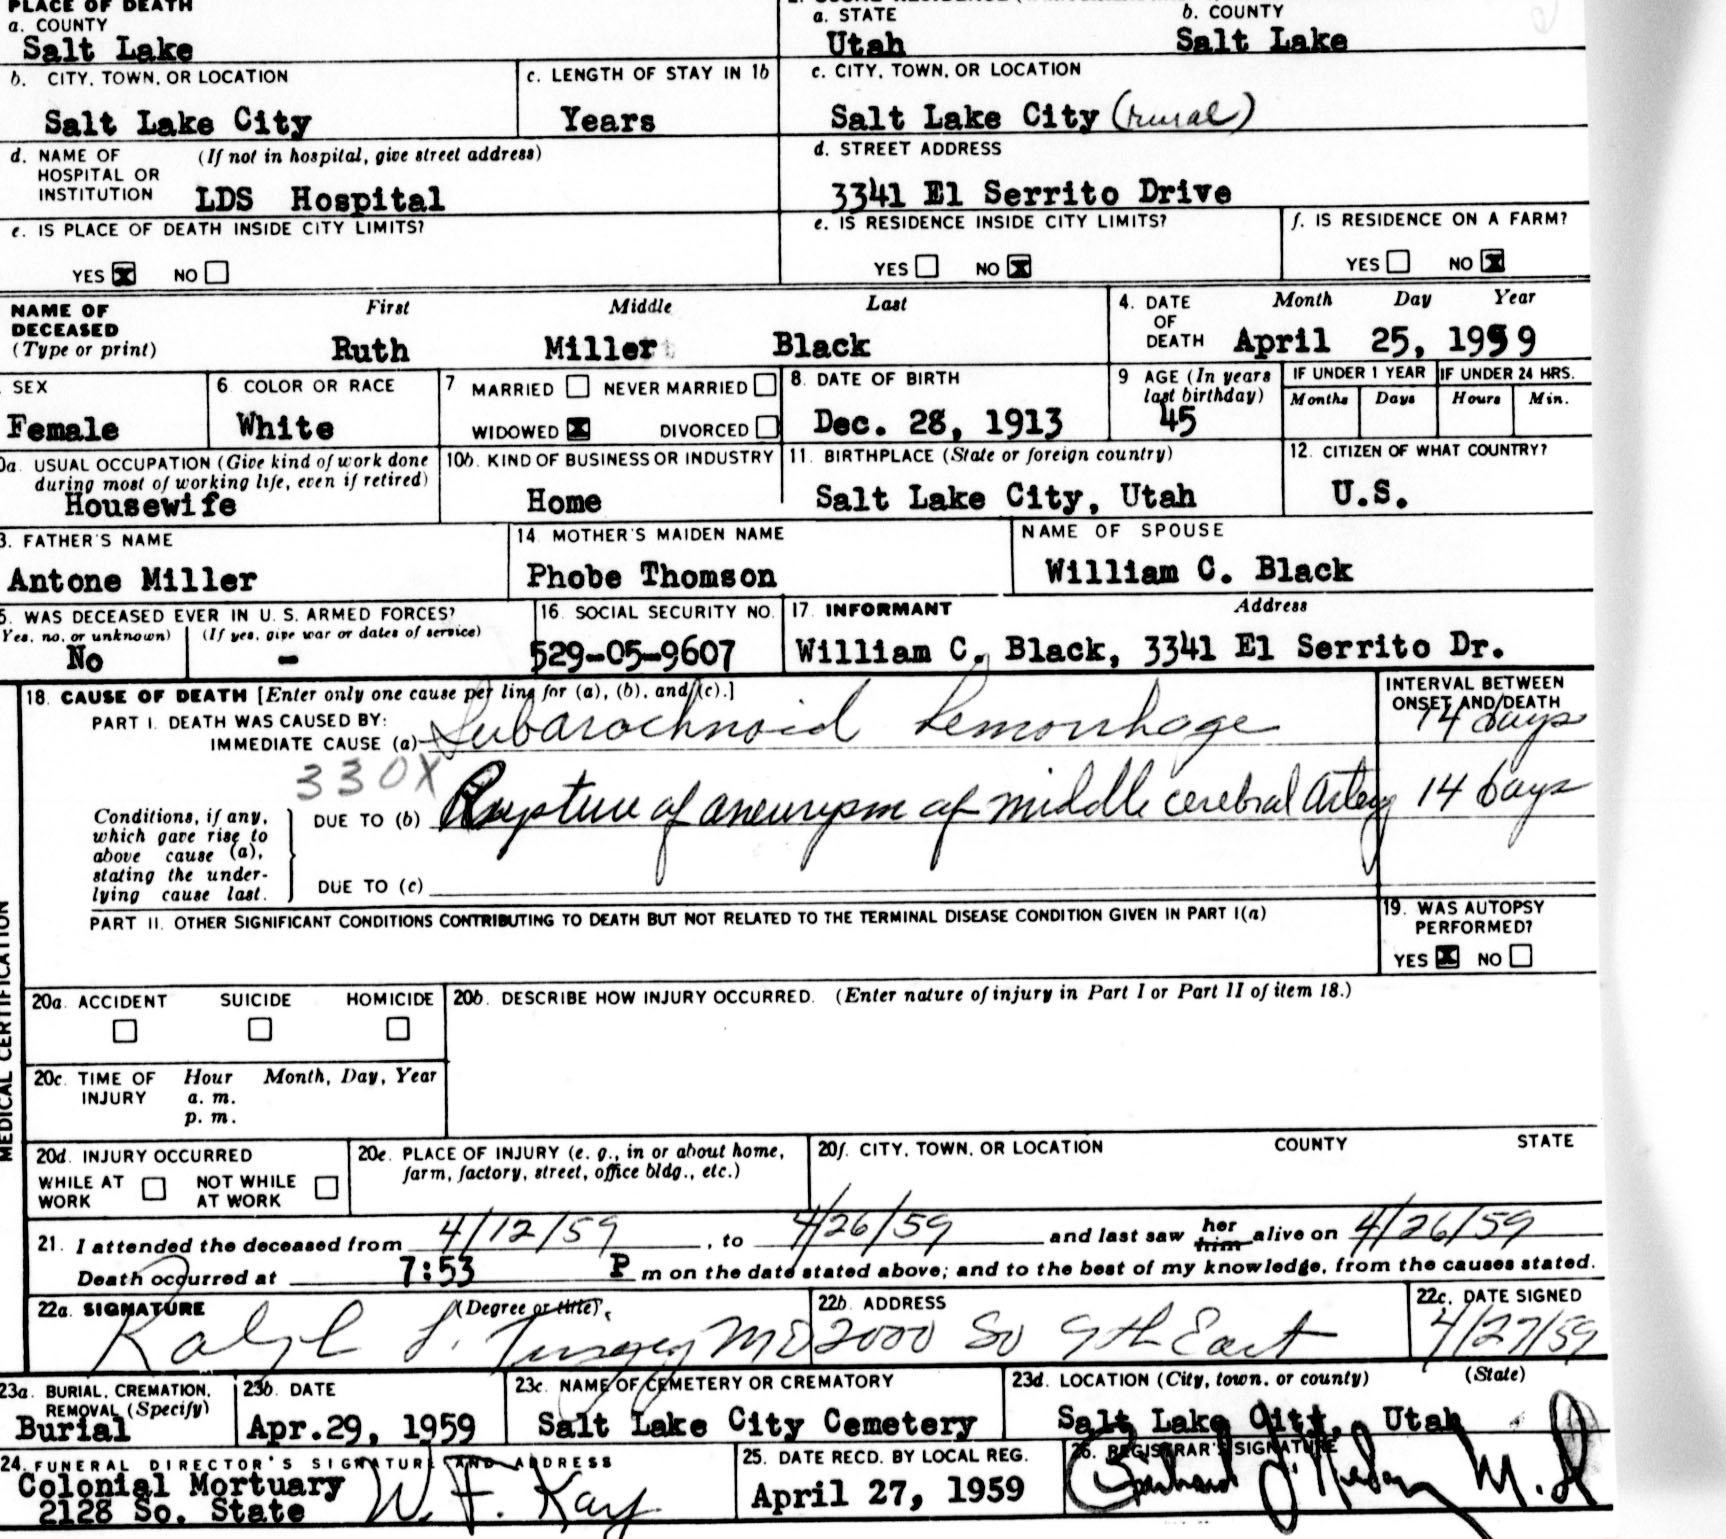 PLACE OF DEATH
a. COUNTY
Salt Lake
a. STATE
Utah
b. COUNTY
Salt Lake
b. CITY, TOWN, OR LOCATION
Salt Lake City
c. LENGTH OF STAY IN 1b
Years
c. CITY, TOWN, OR LOCATION
Salt Lake City (rural)
d. NAME OF (If not in hospital, give street address)
HOSPITAL OR
INSTITUTION LDS Hospital
d. STREET ADDRESS
3341 El Serrito Drive
e. IS PLACE OF DEATH INSIDE CITY LIMITS?
YES X NO
e. IS RESIDENCE INSIDE CITY LIMITS?
YES NO X
f. IS RESIDENCE ON A FARM?
YES NO X
NAME OF First Middle Last
DECEASED
(Type or print) Ruth Miller Black
4. DATE Month Day Year
OF
DEATH April 25, 1959
SEX
Female
6. COLOR OR RACE
White
7 MARRIED NEVER MARRIED
WIDOWED X DIVORCED
8. DATE OF BIRTH
Dec. 28, 1913
9 AGE (In years
last birthday)
45
IF UNDER 1 YEAR IF UNDER 24 HRS.
Months Days Hours Min.
0a. USUAL OCCUPATION (Give kind of work done
during most of working life, even if retired)
Housewife
10b. KIND OF BUSINESS OR INDUSTRY
Home
11. BIRTHPLACE (State or foreign country)
Salt Lake City, Utah
12. CITIZEN OF WHAT COUNTRY?
U.S.
3. FATHER'S NAME
Antone Miller
14. MOTHER'S MAIDEN NAME
Phobe Thomson
NAME OF SPOUSE
William C. Black
5. WAS DECEASED EVER IN U. S. ARMED FORCES?
Yes, no, or unknown) (If yes, give war or dates of service)
No -
16. SOCIAL SECURITY NO.
529-05-9607
17. INFORMANT Address
William C. Black, 3341 El Serrito Dr.
MEDICAL CERTIFICATION
18. CAUSE OF DEATH [Enter only one cause per line for (a), (b), and (c).]
PART I. DEATH WAS CAUSED BY:
IMMEDIATE CAUSE (a) Subarachnoid hemorrhage
INTERVAL BETWEEN
ONSET AND DEATH
14 days
330X
Conditions, if any,
which gave rise to
above cause (a),
stating the under-
lying cause last.
DUE TO (b) Rupture of aneurysm of middle cerebral artery 14 days
DUE TO (c)
PART II. OTHER SIGNIFICANT CONDITIONS CONTRIBUTING TO DEATH BUT NOT RELATED TO THE TERMINAL DISEASE CONDITION GIVEN IN PART I(a)
19. WAS AUTOPSY
PERFORMED?
YES X NO
20a. ACCIDENT SUICIDE HOMICIDE
20b. DESCRIBE HOW INJURY OCCURRED. (Enter nature of injury in Part I or Part II of item 18.)
20c. TIME OF Hour Month, Day, Year
INJURY a. m.
p. m.
20d. INJURY OCCURRED
WHILE AT NOT WHILE
WORK AT WORK
20e. PLACE OF INJURY (e. g., in or about home,
farm, factory, street, office bldg., etc.)
20f. CITY, TOWN, OR LOCATION COUNTY STATE
21. I attended the deceased from 4/12/59, to 4/26/59 and last saw her him alive on 4/26/59
Death occurred at 7:53 P m on the date stated above; and to the best of my knowledge, from the causes stated.
22a. SIGNATURE (Degree or title)
Ralph MD
22b. ADDRESS
2000 So 9th East
22c. DATE SIGNED
4/27/59
23a. BURIAL, CREMATION,
REMOVAL (Specify)
Burial
23b. DATE
Apr.29, 1959
23c. NAME OF CEMETERY OR CREMATORY
Salt Lake City Cemetery
23d. LOCATION (City, town, or county) (State)
Salt Lake Citt, Utah
24. FUNERAL DIRECTOR'S SIGNATURE AND ADDRESS
Colonial Mortuary
2128 So. State
W. F. Kay
25. DATE RECD. BY LOCAL REG.
April 27, 1959
26. REGISTRAR'S SIGNATURE
M.D